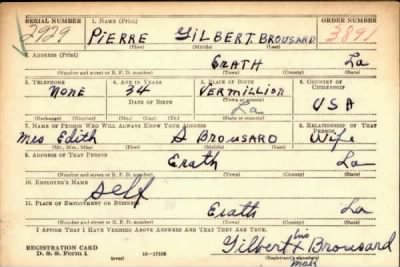 SERIAL NUMBER 1. NAME (Print) ORDER NUMBER
2929 PIERRE GILBERT BROUSARD 3891
(First) (Middle) (Last)
2. ADDRESS (Print)
ERATH La
(Number and street or R. F. D. number) (Town) (County) (State)
3. TELEPHONE 4. AGE IN YEARS 5. PLACE OF BIRTH 6. COUNTRY OF CITIZENSHIP
NONE 34 VERMILLION
DATE OF BIRTH (Town or county)
La USA
(Exchange) (No.) (Mo.) (Day) (Yr.) (State or country)
7. NAME OF PERSON WHO WILL ALWAYS KNOW YOUR ADDRESS 8. RELATIONSHIP OF THAT PERSON
Mrs Edith S BROUSARD Wife
(Mr., Mrs., Miss) (First) (Middle) (Last)
9. ADDRESS OF THAT PERSON
Erath La
(Number and street or R. F. D. number) (Town) (County) (State)
10. EMPLOYER'S NAME
self
11. PLACE OF EMPLOYMENT OR BUSINESS
Erath La
(Number and street or R. F. D. number) (Town) (County) (State)
I AFFIRM THAT I HAVE VERIFIED ABOVE ANSWERS AND THAT THEY ARE TRUE.
REGISTRATION CARD his
D. S. S. Form 1 16—17105 Gilbert X Brousard
(Registrant's signature)
mark